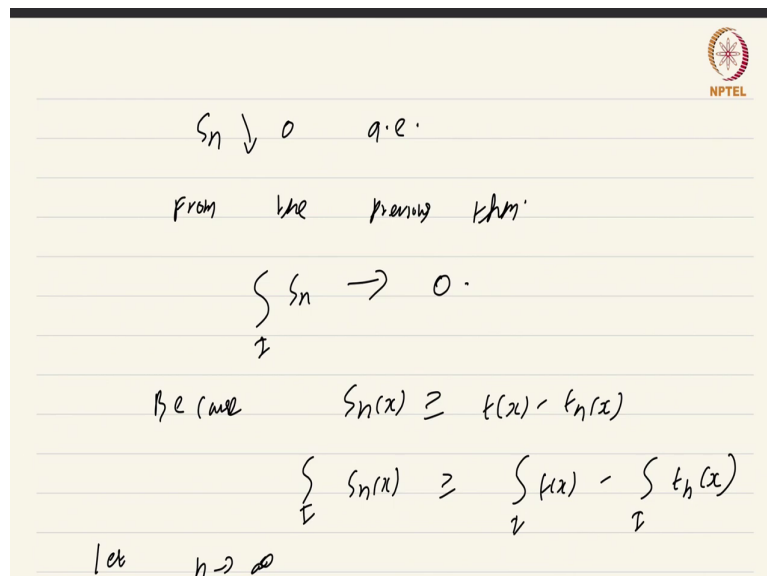 NPTEL
Sn ↓ 0 a.e.
From the previous thm.
∫_I Sn → 0.
Because Sn(x) ≥ t(x) - tn(x)
∫_I Sn(x) ≥ ∫_I t(x) - ∫_I tn(x)
let n → ∞